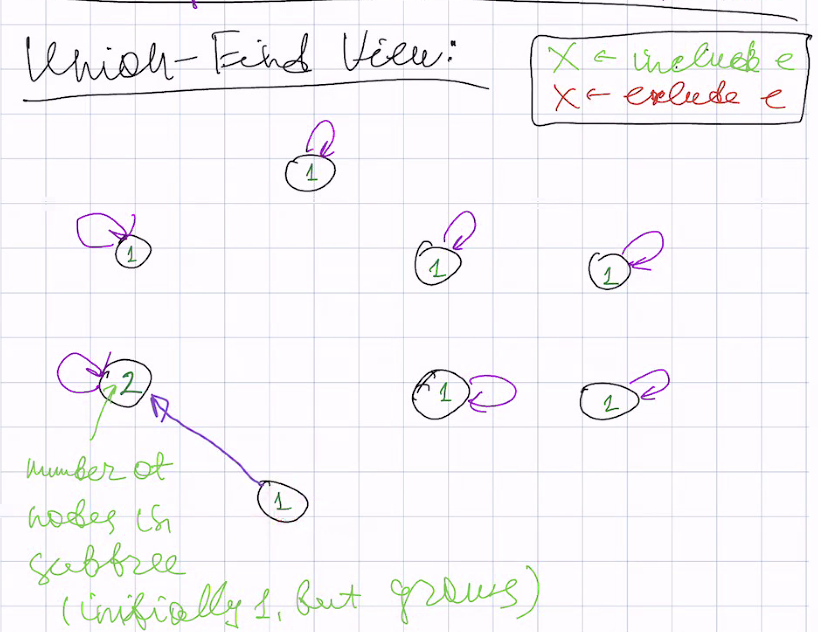 Union-Find View:
X ← include e
X ← exclude e
1
1
1
1
2
1
1
1
number of
nodes in
subtree
(initially 1, but grows)